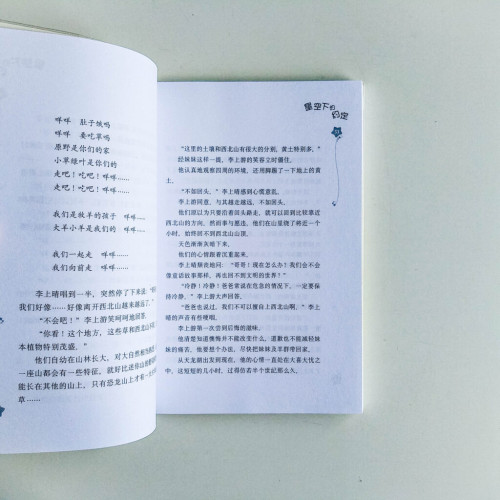 咩咩 肚子饿吗
咩咩 要吃草吗
原野是你们的家
小草绿叶是你们的
走吧！吃吧！咩咩……
走吧！吃吧！咩咩……
我们是放羊的孩子 咩咩……
大羊小羊是我们的 咩咩……
我们一起走 咩咩……
我们向前走 咩咩……
李上晴唱到一半，突然停了下来说：
我们好像……好像离开西北山越来越远了。”
“不会吧！”李上游笑呵呵地回答。
“你看！这个地方，这些草和西北山
本植物特别茂盛。”
他们自幼在山林长大，对大自然
一座山都会有一些特征，就好比
能长在其他的山上，只有恐龙山上才有
草……
星空下的约定
“这里的土壤和西北山有很大的分别，黄土特别多。”
经妹妹这样一说，李上游的笑容立时僵住。
他认真地观察四周的环境，还用脚踢了一下地上的黄
土。
“不如回头。”李上晴感到心慌意乱。
李上游同意，与其越走越远，不如回头。
他们原以为只要沿着回头路走，就可以回到比较靠近
西北山的方向，然而事与愿违，他们在山里绕了将近一个
小时，始终回不到西北山山顶。
天色渐渐灰暗下来，
他们的心情沉重起来。
李上晴颓丧地问：“哥哥！现在怎么办？我们会不会
像童话故事那样，再也回不到文明的世界！”
“冷静！冷静！爸爸常说在危急的情况下，一定要保
持冷静。”李上游大声回答。
“爸爸也说过，我们不可以擅自上西北山啊。”李上
晴的声音有些哽咽。
李上游第一次尝到后悔的滋味。
他清楚知道懊悔并不能改变什么，道歉也不能减轻妹
妹的痛苦，他要想个办法，尽快把妹妹及羊群带回家。
从天龙湖出发到现在，他的心情一直处在大喜大忧之
中，这短短的几小时，过得仿若半个世纪那么久。